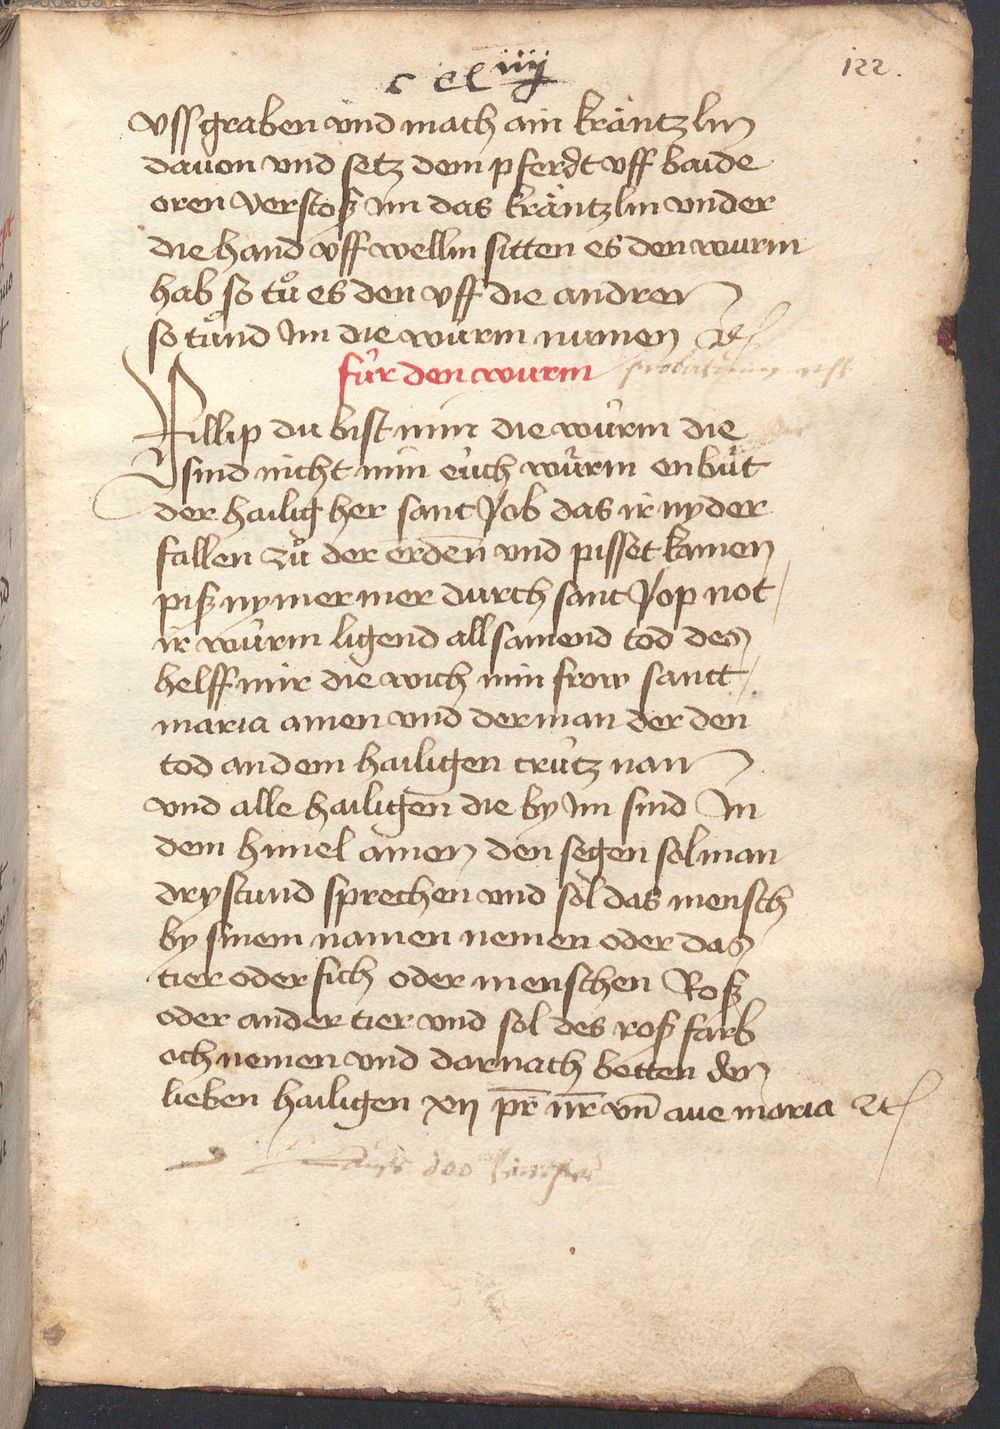 c cl iiij
122.
vssgraben vnd mach ain kräntzlin
dauon vnd setz dem pferdt vff baide
oren verstoß im das kräntzlin vnder
die hand vff wellin sitten es den wurm
hab so tů es den vff die andren
so tůnd im die wu̇rm nümen ꝛc
fu̇r den wurm probatum est
Pillip du bist min die wu̇rm die
sind nicht min eu̇ch wu̇rm enbu̇t
der hailig her sant Job das ir nyder
fallen zů der erden und pisset kainen
piß nymer mer durch sant Jop not
ir wu̇rm ligend allsamend tod des
helff mir die wich min frow sanct
maria amen vnd der man der den
tod an dem hailigen cru̇tz nam
vnd alle hailigen die by im sind In
dem himel amen den segen sol man
dry stund sprechen vnd sol das mensch
by sinem namen nemen oder das
tier oder fich oder menschen Roß
oder ander tier vnd sol des roß farb
och nemen vnd darnach betten den
lieben hailigen xij pr̄ nr̄ vn̄ aue maria ꝛc